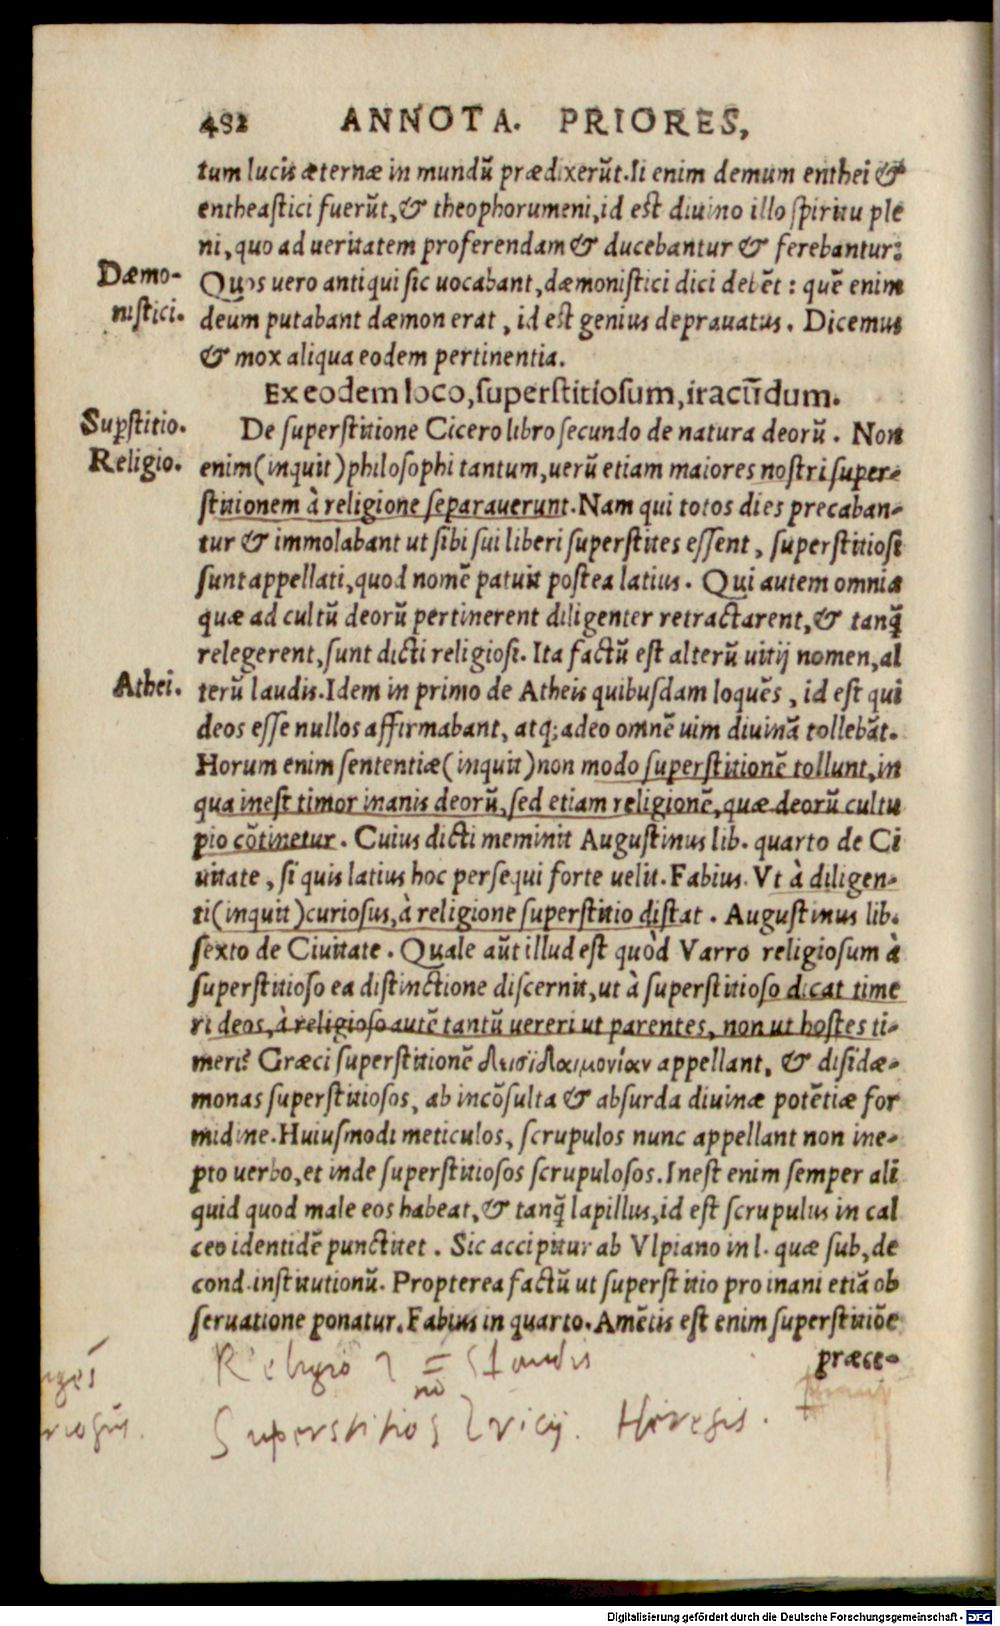 482 ANNOTA. PRIORES,
tum lucis æternæ in mundũ prædixerũt. Ii enim demum enthei &
entheastici fuerũt, & theophorumeni, id est diuino illo spiritu ple
ni, quo ad ueritatem proferendam & ducebantur & ferebantur:
Dæmo-
nistici.
Quos uero antiqui sic uocabant, dæmonistici dici debẽt: quẽ enim
deum putabant dæmon erat, id est genius deprauatus. Dicemus
& mox aliqua eodem pertinentia.
Ex eodem loco, superstitiosum, iracũdum.
Supstitio.
Religio.
De superstitione Cicero libro secundo de natura deorũ. Non
enim (inquit) philosophi tantum, uerũ etiam maiores nostri super-
stitionem à religione separauerunt. Nam qui totos dies precaban-
tur & immolabant ut sibi sui liberi superstites essent, superstitiosi
sunt appellati, quod nomẽ patuit postea latius. Qui autem omnia
quæ ad cultũ deorũ pertinerent diligenter retractarent, & tanq̃
relegerent, sunt dicti religiosi. Ita factũ est alterũ uitij nomen, al
Athei.
terũ laudis. Idem in primo de Atheis quibusdam loquẽs, id est qui
deos esse nullos affirmabant, atq; adeo omnẽ uim diuinã tollebãt.
Horum enim sententiæ (inquit) non modo superstitionẽ tollunt, in
qua inest timor inanis deorũ, sed etiam religionẽ, quæ deorũ cultu
pio cõtinetur. Cuius dicti meminit Augustinus lib. quarto de Ci
uitate, si quis latius hoc persequi forte uelit. Fabius. Vt à diligen-
ti (inquit) curiosus, à religione superstitio distat. Augustinus lib.
sexto de Ciuitate. Quale aũt illud est quòd Varro religiosum à
superstitioso ea distinctione discernit, ut à superstitioso dicat time
ri deos, à religioso autẽ tantũ uereri ut parentes, non ut hostes ti-
meri? Græci superstitionẽ δεισιδαιμονίαν appellant, & disidæ-
monas superstitiosos, ab incõsulta & absurda diuinæ potẽtiæ for
midine. Huiusmodi meticulos, scrupulos nunc appellant non ine-
pto uerbo, et inde superstitiosos scrupulosos. Inest enim semper ali
quid quod male eos habeat, & tanq̃ lapillus, id est scrupulus in cal
ceo identidẽ punctitet. Sic accipitur ab Vlpiano in l. quæ sub, de
cond. institutionũ. Propterea factũ ut superstitio pro inani etiã ob
seruatione ponatur. Fabius in quarto. Amẽtis est enim superstitiõe
præce-
Religio
Superstitio vicij. Heresis.